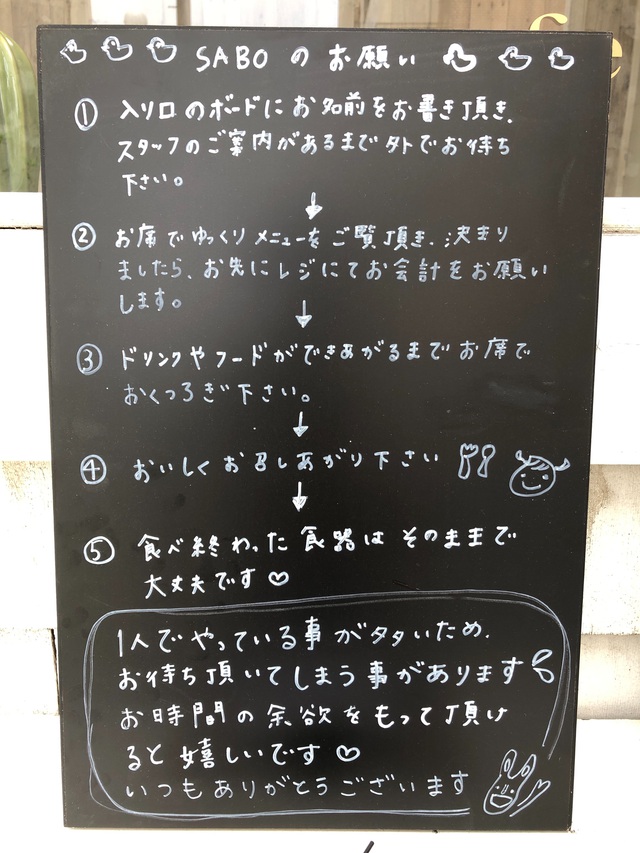 SABOのお願い
① 入り口のボードにお名前をお書き頂き、
スタッフのご案内があるまで外でお待ち
下さい。
↓
② お席でゆっくりメニューをご覧頂き、決まり
ましたら、お先にレジにてお会計をお願い
します。
↓
③ ドリンクやフードができあがるまでお席で
おくつろぎ下さい。
↓
④ おいしくお召しあがり下さい
↓
⑤ 食べ終わった食器はそのままで
大丈夫です♡
1人でやっている事が多いため、
お待ち頂いてしまう事があります
お時間の余欲をもって頂け
ると嬉しいです♡
いつもありがとうございます